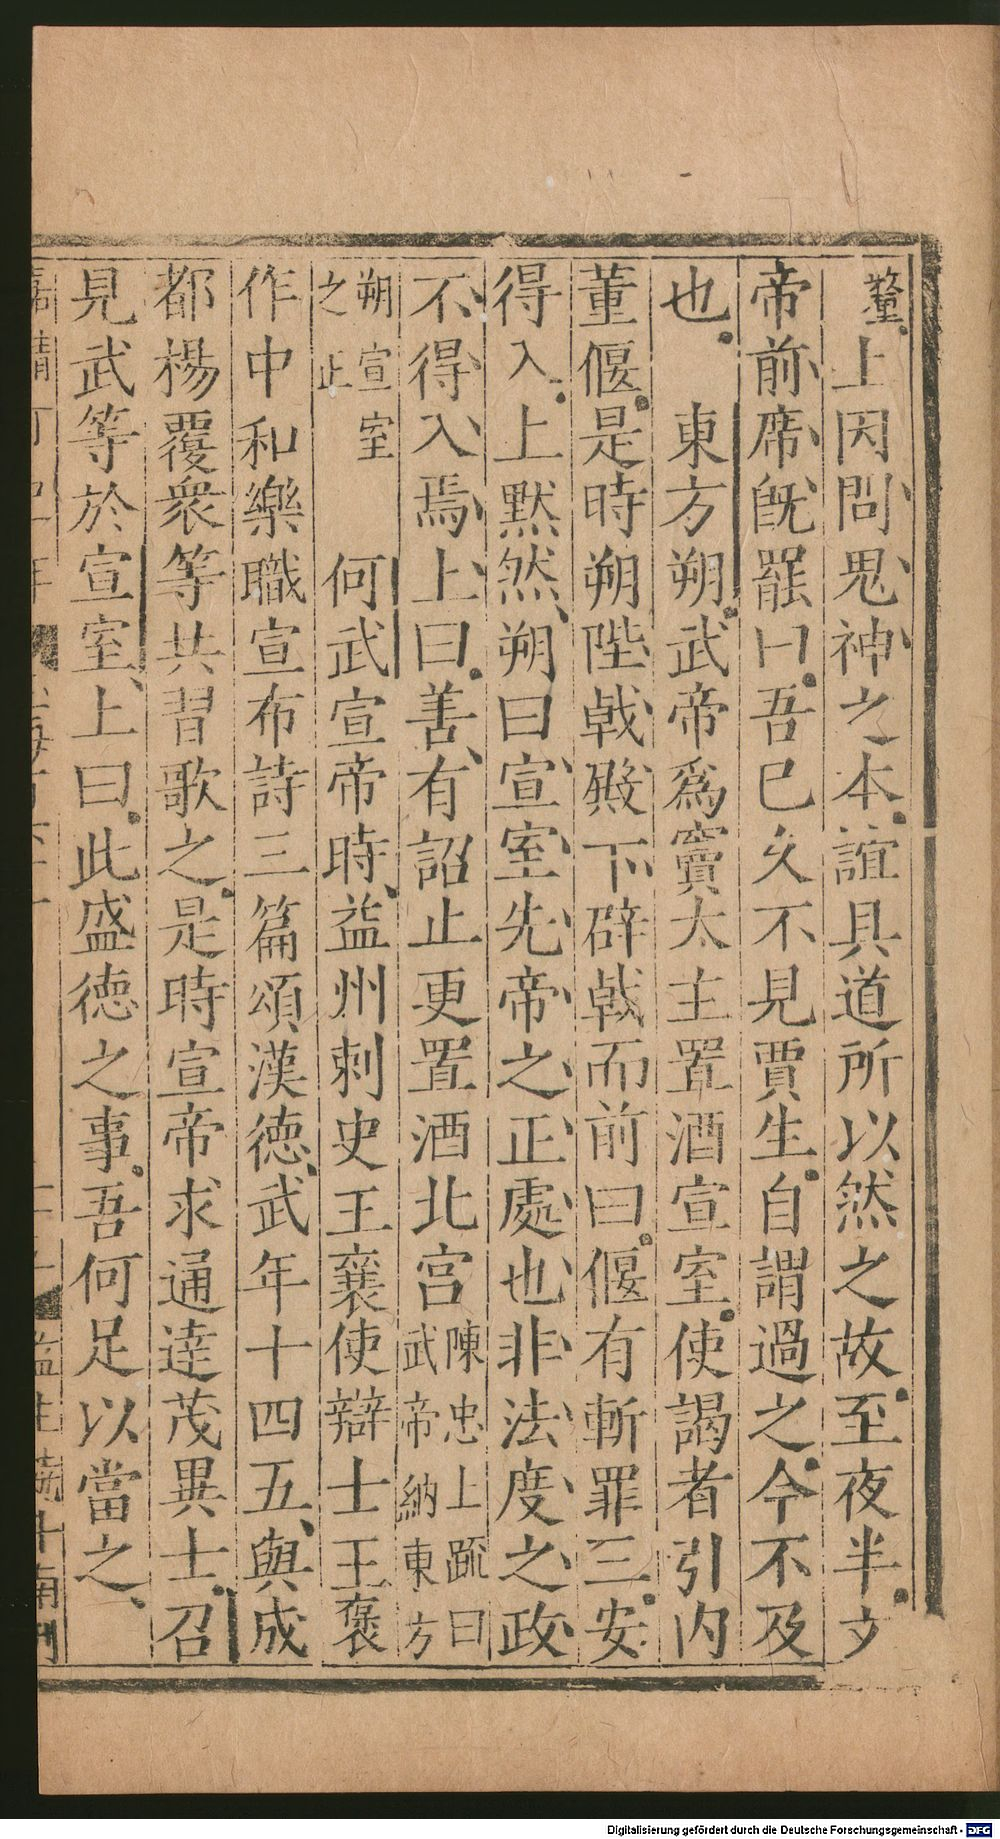 釐上因問鬼神之本誼具道所以然之故至夜半文
帝前席旣罷曰吾已久不見賈生自謂過之今不及
也 東方朔武帝爲竇太主置酒宣室使謁者引内
董偃是時朔陛戟殿下辟戟而前曰偃有斬罪三安
得入上默然朔曰宣室先帝之正處也非法度之政
不得入焉上曰善有詔止更置酒北宫陳忠上䟽曰武帝納東方
朔宣室之正 何武宣帝時益州刺史王襄使辯士王褒
作中和樂職宣布詩三篇頌漢德武年十四五與成
都楊覆衆等共習歌之是時宣帝求通達茂異士召
見武等於宣室上曰此盛德之事吾何足以當之
Digitalisierung gefördert durch die Deutsche Forschungsgemeinschaft - DFG